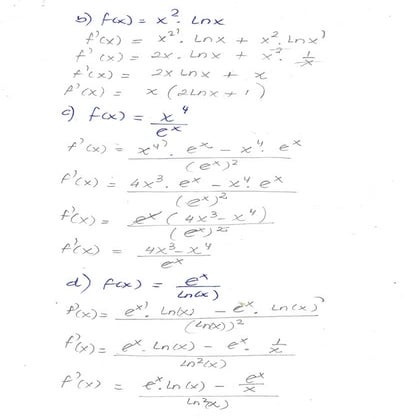 b) f(x) = x². lnx
f'(x) = x²'. lnx + x². lnx'
f'(x) = 2x. lnx + x². 1/x
f'(x) = 2x lnx + x
f'(x) = x (2lnx + 1)
c) f(x) = x⁴/eˣ
f'(x) = (x⁴'. eˣ - x⁴. eˣ)/(eˣ)²
f'(x) = (4x³. eˣ - x⁴. eˣ)/(eˣ)²
f'(x) = eˣ (4x³ - x⁴)/(eˣ)²
f'(x) = (4x³ - x⁴)/eˣ
d) f(x) = eˣ/ln(x)
f'(x) = (eˣ'. ln(x) - eˣ. ln(x)')/(ln(x))²
f'(x) = (eˣ. ln(x) - eˣ. 1/x)/ln²(x)
f'(x) = (eˣ. ln(x) - eˣ/x)/ln²(x)